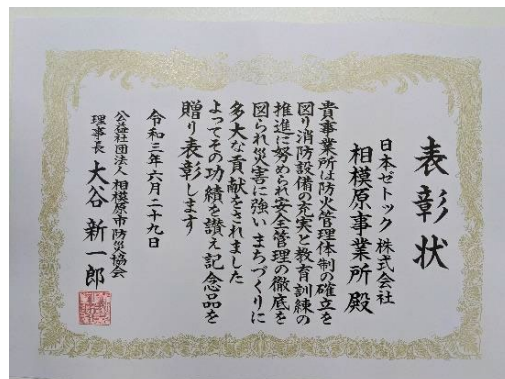 表彰状
日本ゼトック 株式会社
相模原事業所 殿
貴事業所は防火管理体制の確立を
図り消防設備の充実と教育訓練の
推進に努められ安全管理の徹底を
図られ災害に強いまちづくりに
多大な貢献をされました
よってその功績を讃え記念品を
贈り表彰します
令和三年六月二十九日
公益社団法人 相模原市防災協会
理事長 大谷 新一郎